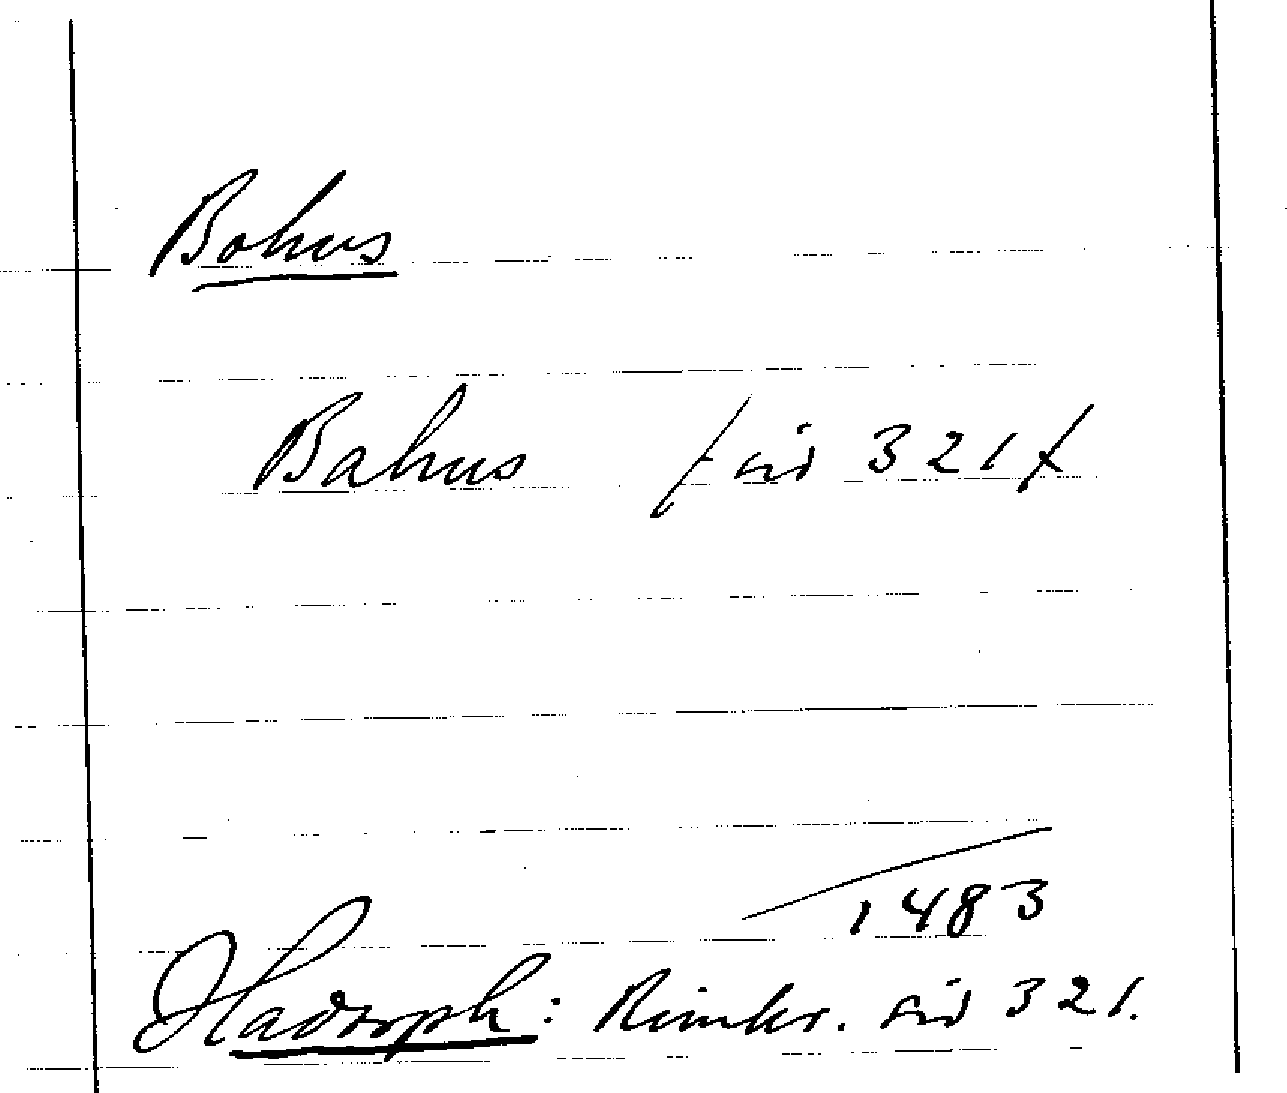 Bohus
Bahus /sid 321/
1483
Hadorph: Rimkr. sid 321.